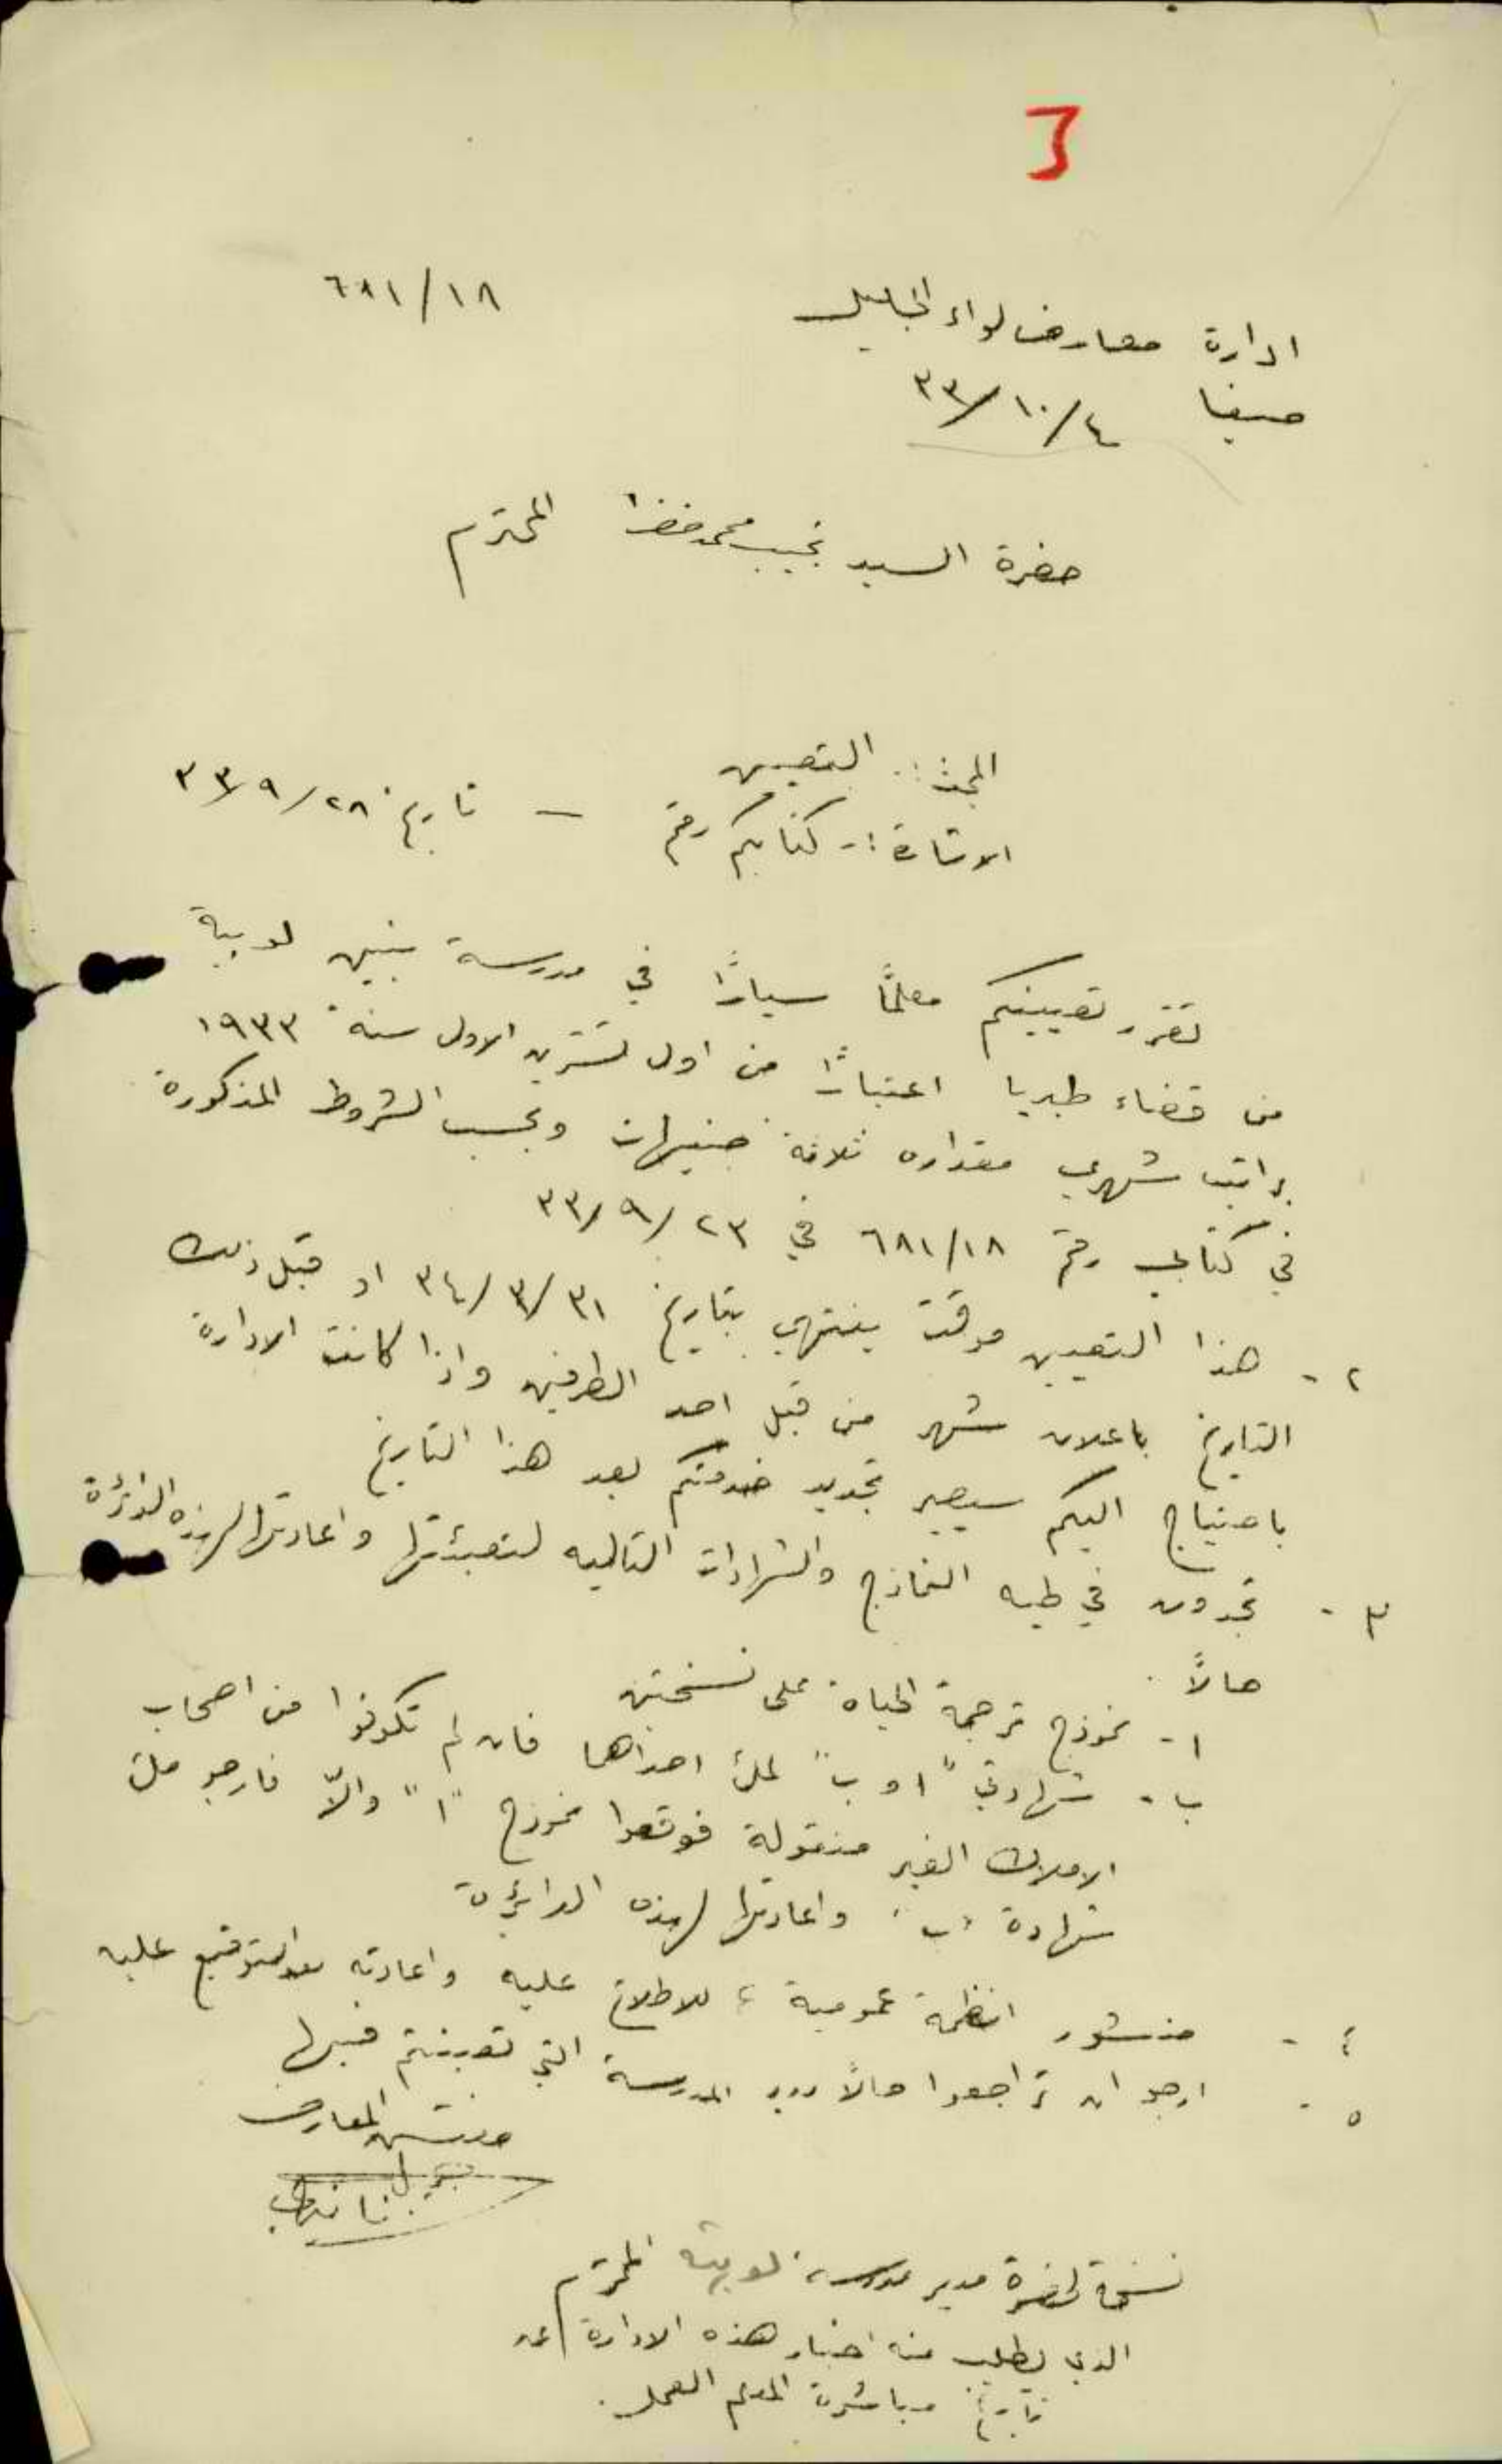 3
٦٨١/١٨
ادارة معارف لواء الجليل
حيفا ٣٣/١٠/٤
حضرة السيد نجيب محمد خضرا المحترم
البحث :. التعيين
الاشارة :- كتابكم رقم — تاريخ ٣٣/٩/٢٨
تقرر تعيينكم معلمًا سيارًا في مدرسة بنين لوبية
من قضاء طبريا اعتبارًا من اول تشرين الاول سنة ١٩٣٣
براتب شهري مقداره ثلاثة جنيهات وبحسب الشروط المذكورة
في كتابي رقم ٦٨١/١٨ في ٣٣/٩/٢٣
٢ - هذا التعيين موقت ينتهي بتاريخ ٣٤/٣/٣١ او قبل ذلك
التاريخ باعلان شهر من قبل احد الطرفين واذا كانت الادارة
باحتياج اليكم سيصير تجديد خدمتكم بعد هذا التاريخ
٣ - تجدون في طيه النماذج والشهادات التاليه لتعبئتها واعادتها لهذه الدائرة
حالاً .
ا - نموذج ترجمة الحياة على نسختين
ب - شهادتي "ا و ب" لملئ احداهما فان لم تكونوا من اصحاب
الاملاك الغير منقولة فوقعوا نموذج "ا" والاّ فارجو ملئ
شهادة "ب" واعادتها لهذه الدائرة
٤ - منشور انظمة عمومية ٤ للاطلاع عليه واعادته بعد التوقيع عليه
٥ - ارجو ان تراجعوا حالاً مدير المدرسة التي تعينتم فيها
مفتش المعارف
نسخة لحضرة مدير مدرسة لوبية المحترم
الذي يطلب منه اخبار هذه الادارة عن
تاريخ مباشرة المعلم العمل .